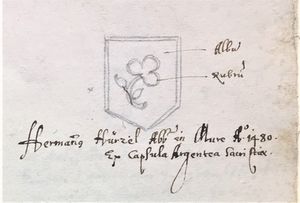 Alba
Rubrū
Hermañ9 Hürzel Abb in Mure A° 1480.
Ex Capsula Argentea Sacristiæ.